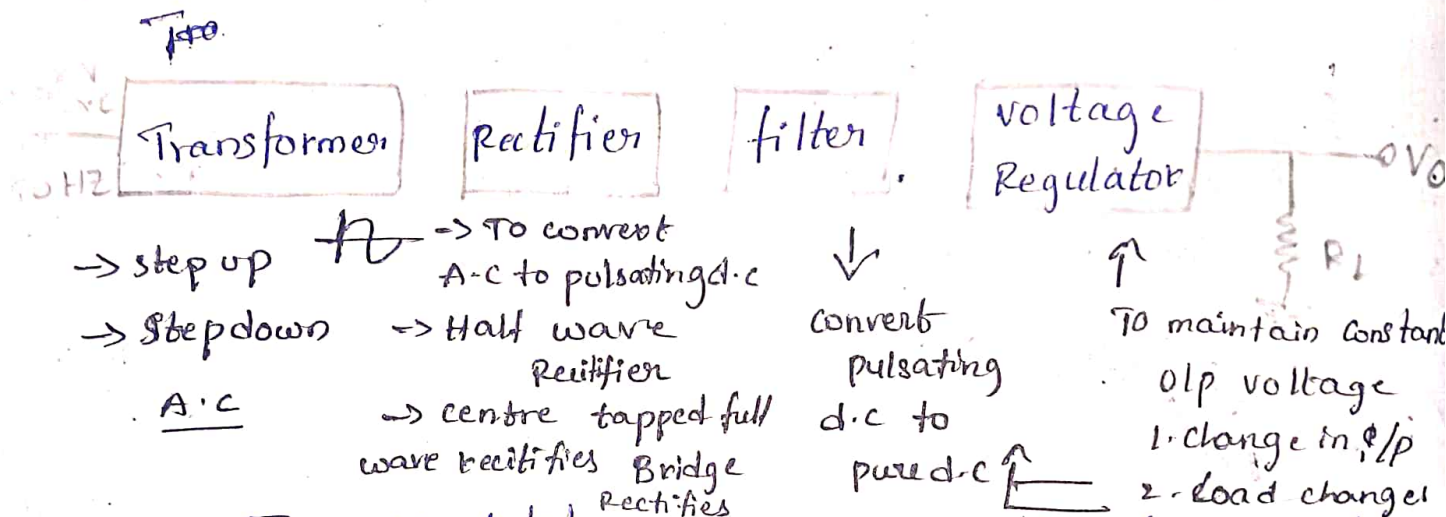 Transformer
Rectifier
filter
voltage
Regulator
Vo
HZ
RL
-> step up
-> Stepdown
A.C
-> To convert
A-C to pulsating d.c
-> Half wave
Reitifier
-> centre tapped full
wave recitifies Bridge
Rectifies
convert
pulsating
d.c to
pure d.c
To maintain constant
o/p voltage
1. Change in i/p
2. Load changes